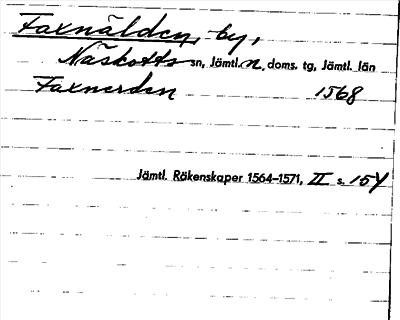 Faxnälden, by,
Näskotts sn, Jämtl. n. doms. tg, Jämtl. län
Faxnerden 1568
Jämtl. Räkenskaper 1564–1571, II s. 154